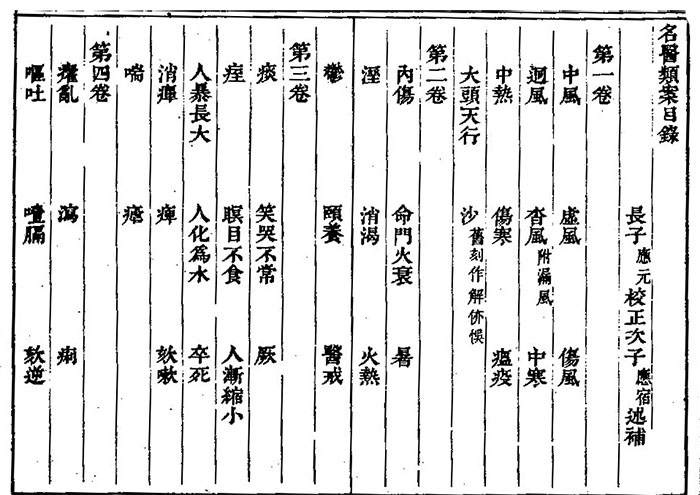 名醫類案目錄
長子應元校正次子應宿述補
第一卷
中風 虛風 傷風
迥風 沓風附漏風 中寒
中熱 傷寒 瘟疫
大頭天行 沙舊刻作解㑊悞
第二卷
內傷 命門火衰 暑
溼 消渴 火熱
鬱 頤養 醫戒
第三卷
痰 笑哭不常 厥
痓 瞑目不食 人漸縮小
人暴長大 人化爲水 卒死
消癉 痺 欬嗽
喘 瘧
第四卷
霍亂 瀉 痢
嘔吐 噎膈 欬逆